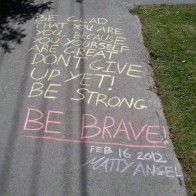 BE GLAD
THAT YOU ARE
YOU, BECAUSE
YOU YOURSELF
ARE GREAT
DON'T GIVE
UP YET!
BE STRONG
BE BRAVE!
FEB 16 2012
MATTY ANGEL